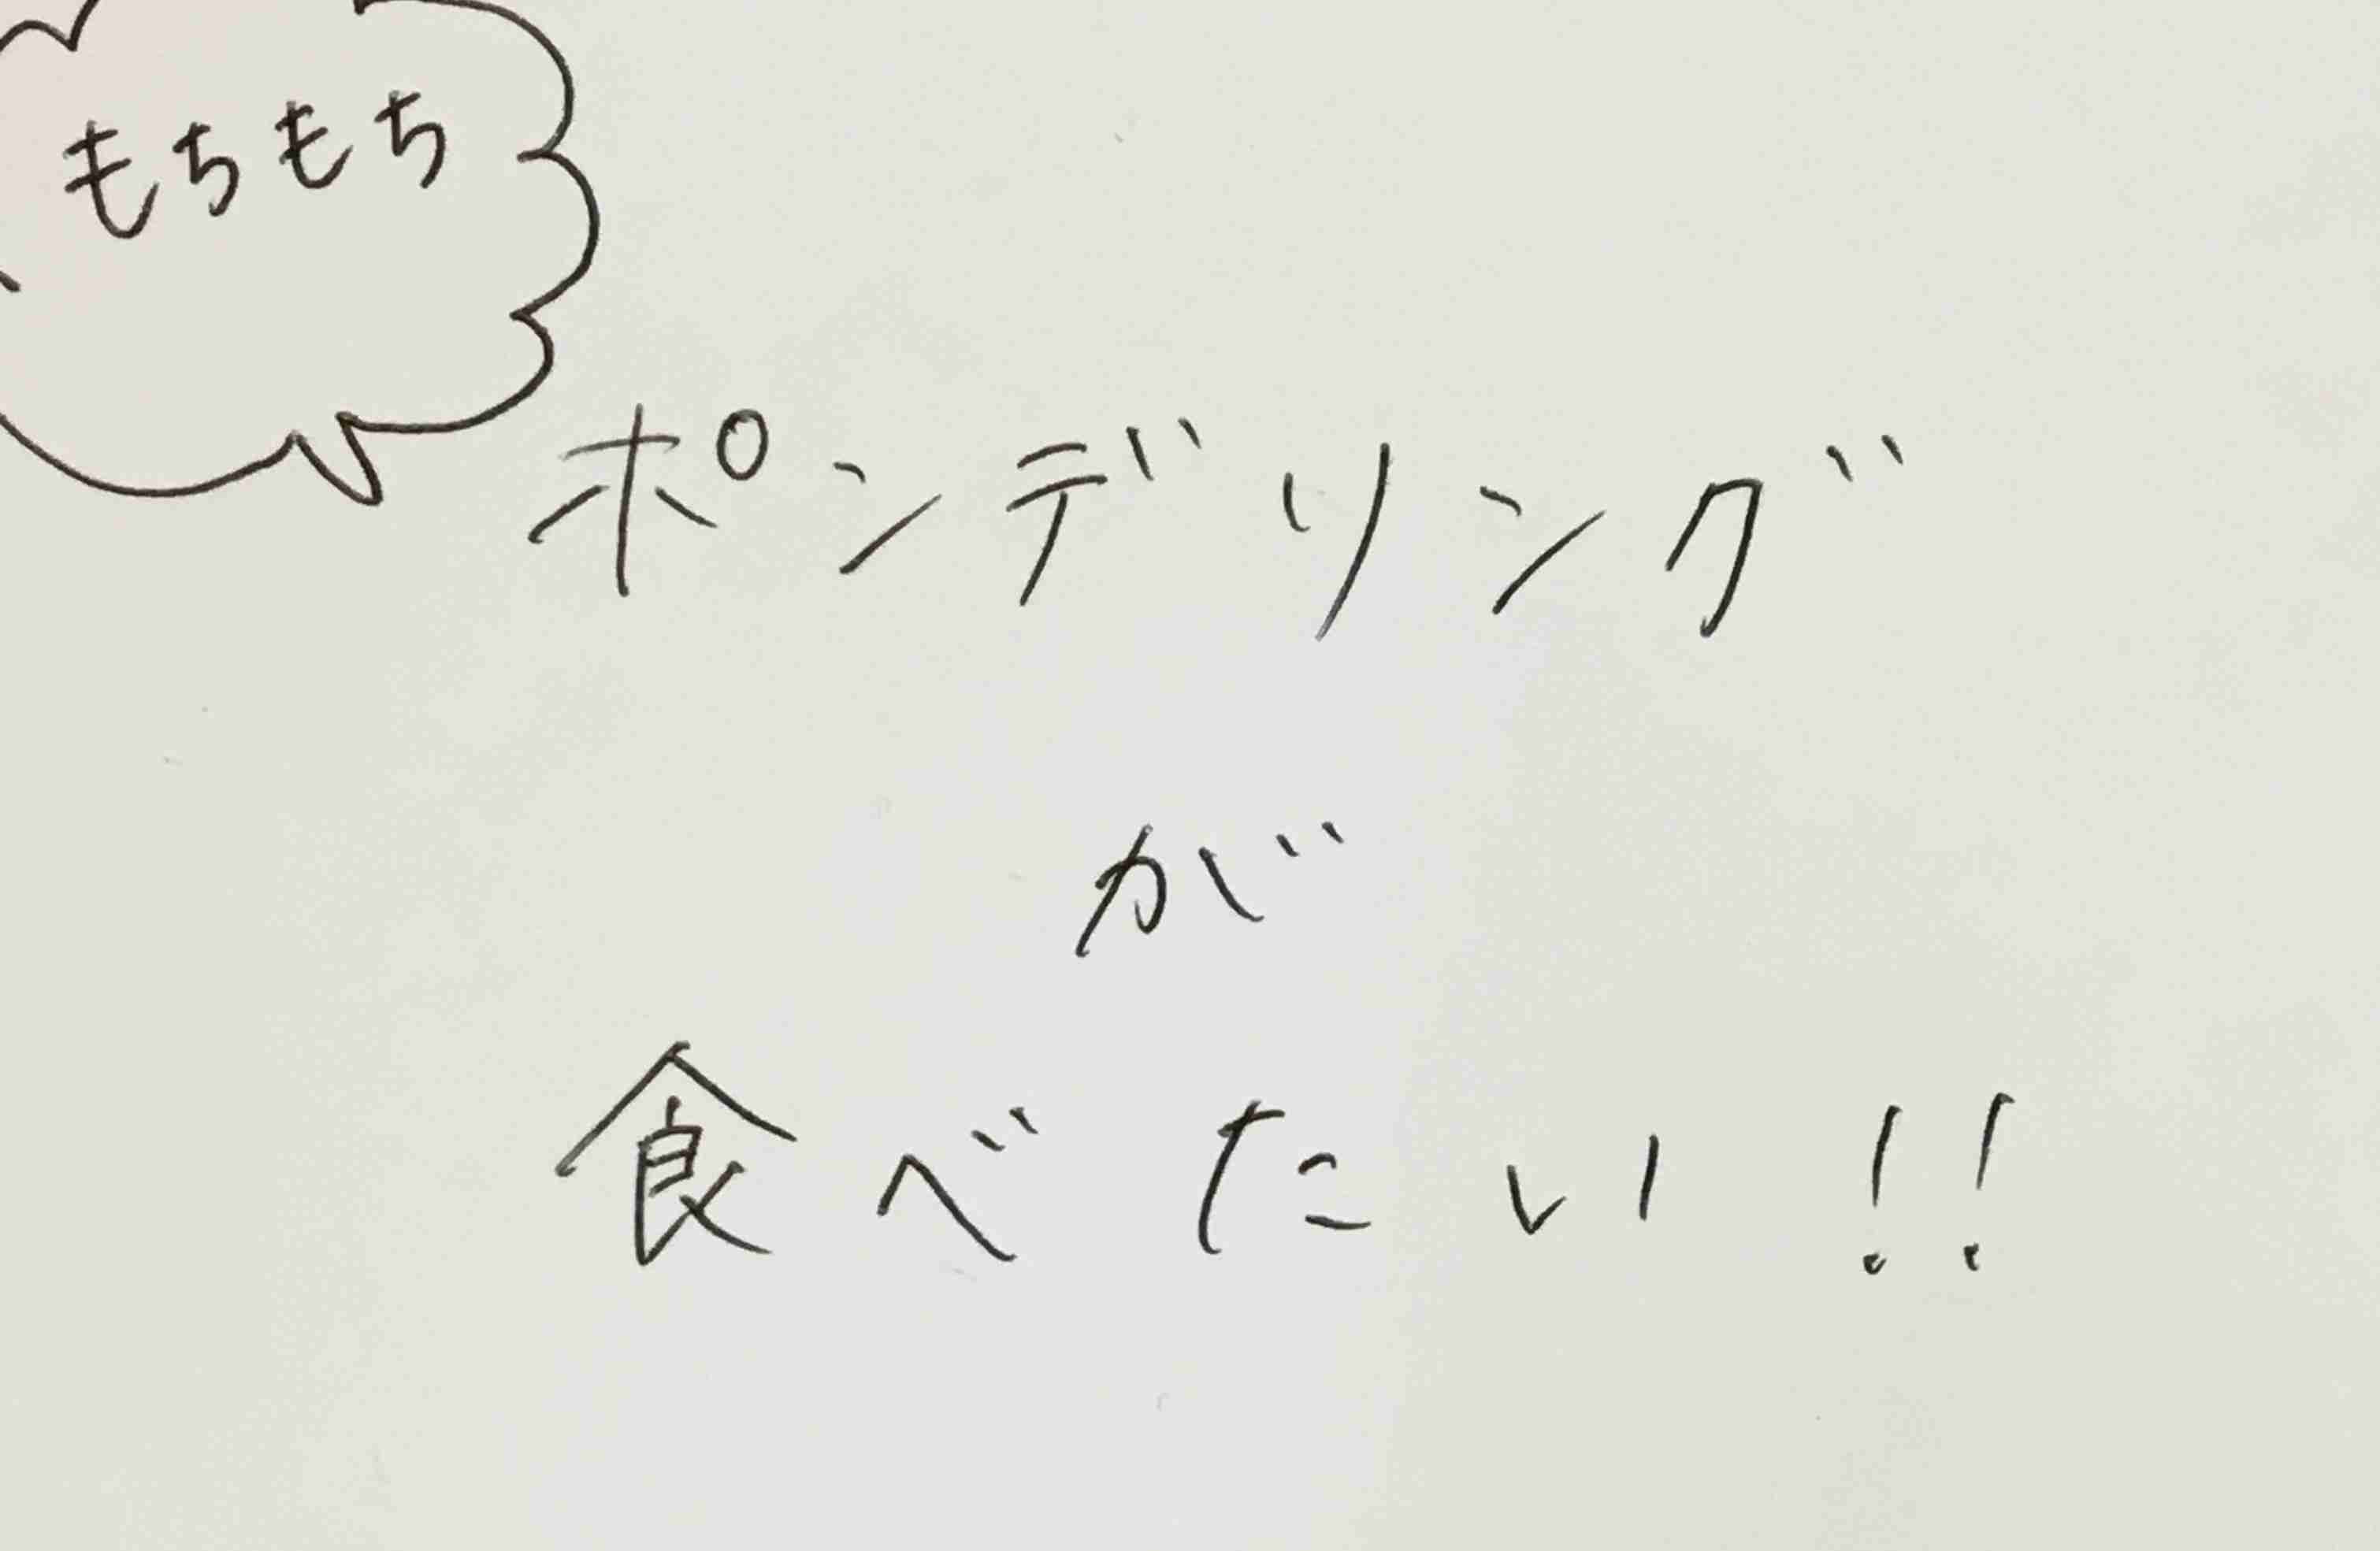 もちもち
ポンデリング
が
食べたい!!